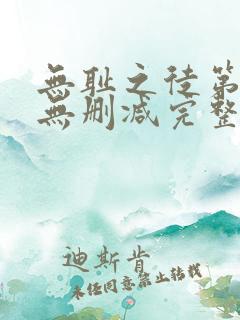 無耻之徒第
無删减完整
迪斯肯
未经同意禁止转载